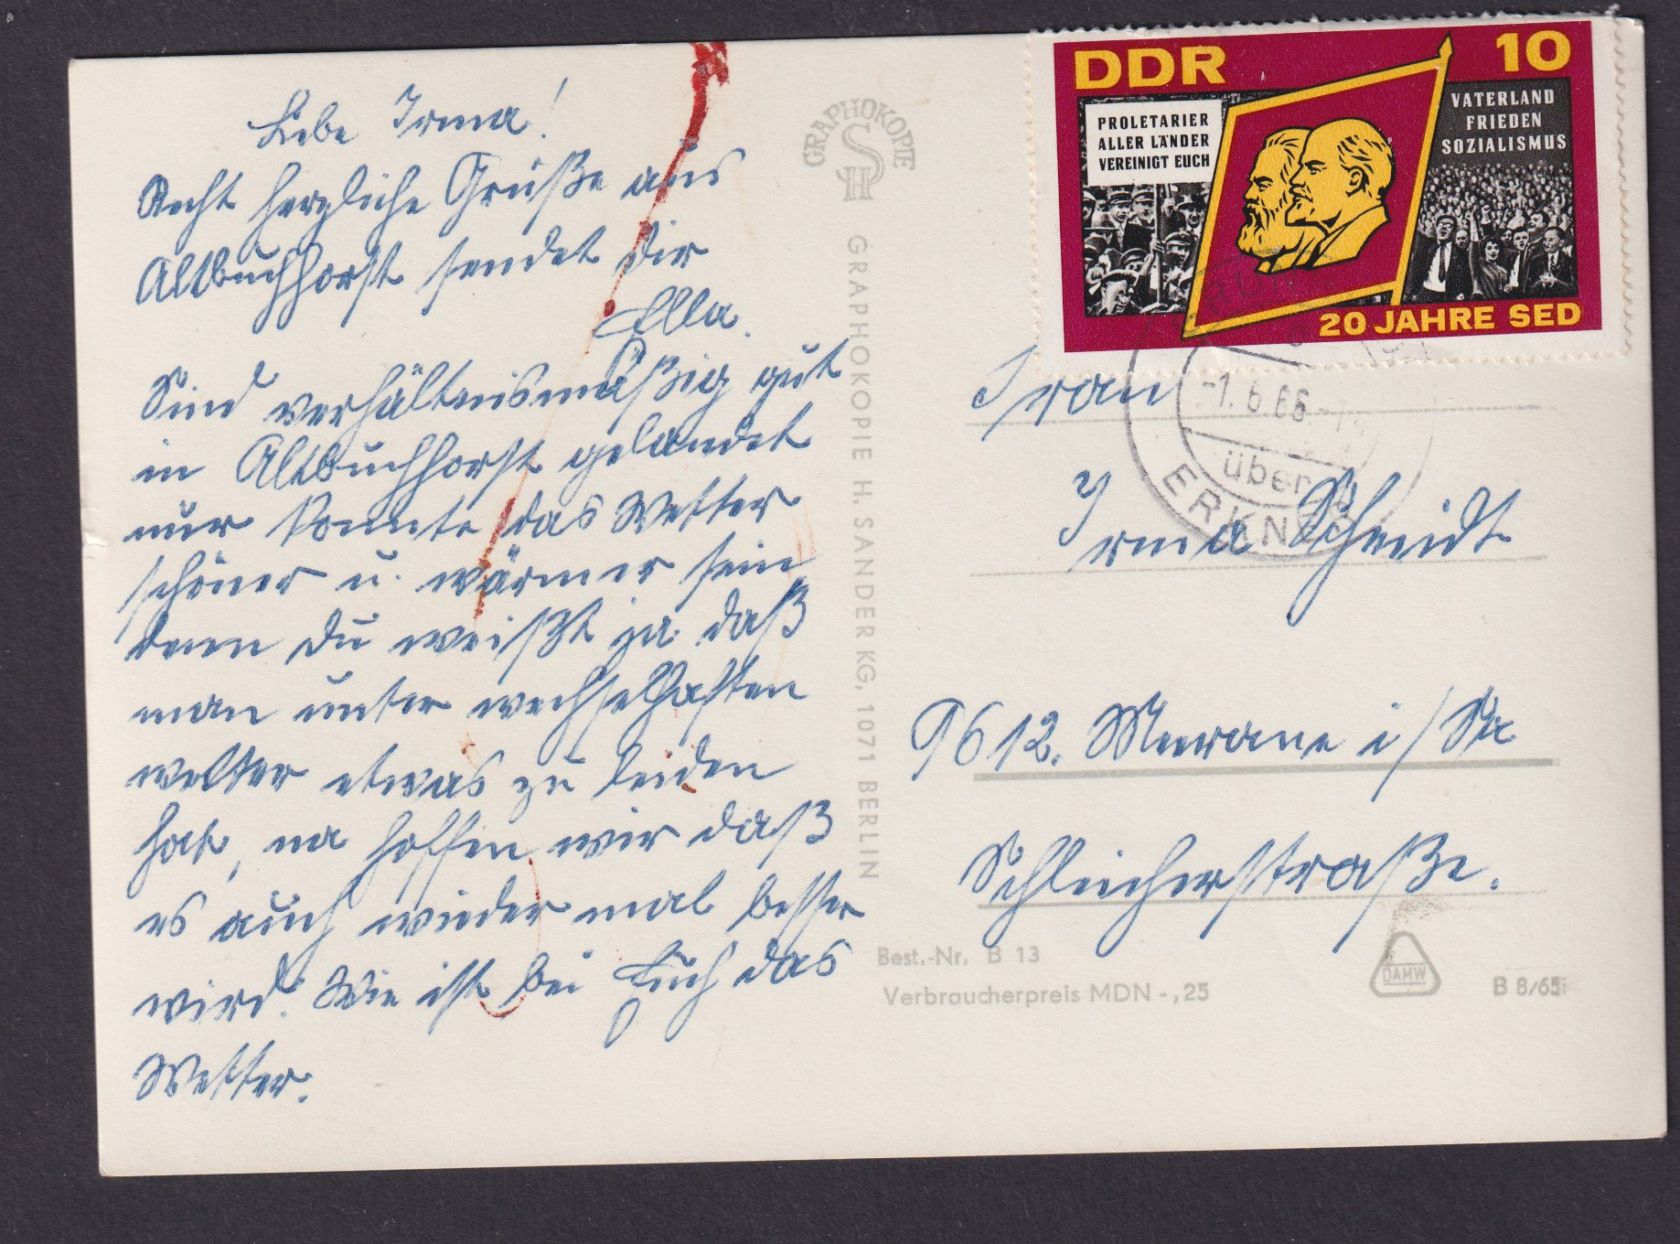 Liebe Irma!
Recht herzliche Grüße aus
Altbuchhorst sendet dir
Ella.
Sind verhältnismäßig gut
in Altbuchhorst gelandet
nur konnte das Wetter
schöner u. wärmer sein
denn du weißt ja daß
man unter wechselhaften
wetter etwas zu leiden
hat, na hoffen wir daß
es auch wieder mal besser
wird. Wie ist bei Euch das
Wetter.
GRAPHOKOPIE
SH
GRAPHOKOPIE H. SANDER KG, 1071 BERLIN
DDR 10
PROLETARIER
ALLER LÄNDER
VEREINIGT EUCH
VATERLAND
FRIEDEN
SOZIALISMUS
20 JAHRE SED
-1.6.66
über
ERKNER
Frau
Irma Schmidt
9612. Meerane i/Sa
Schleicherstraße.
Best.-Nr. B 13
Verbraucherpreis MDN -,25
DAMW
B 8/65